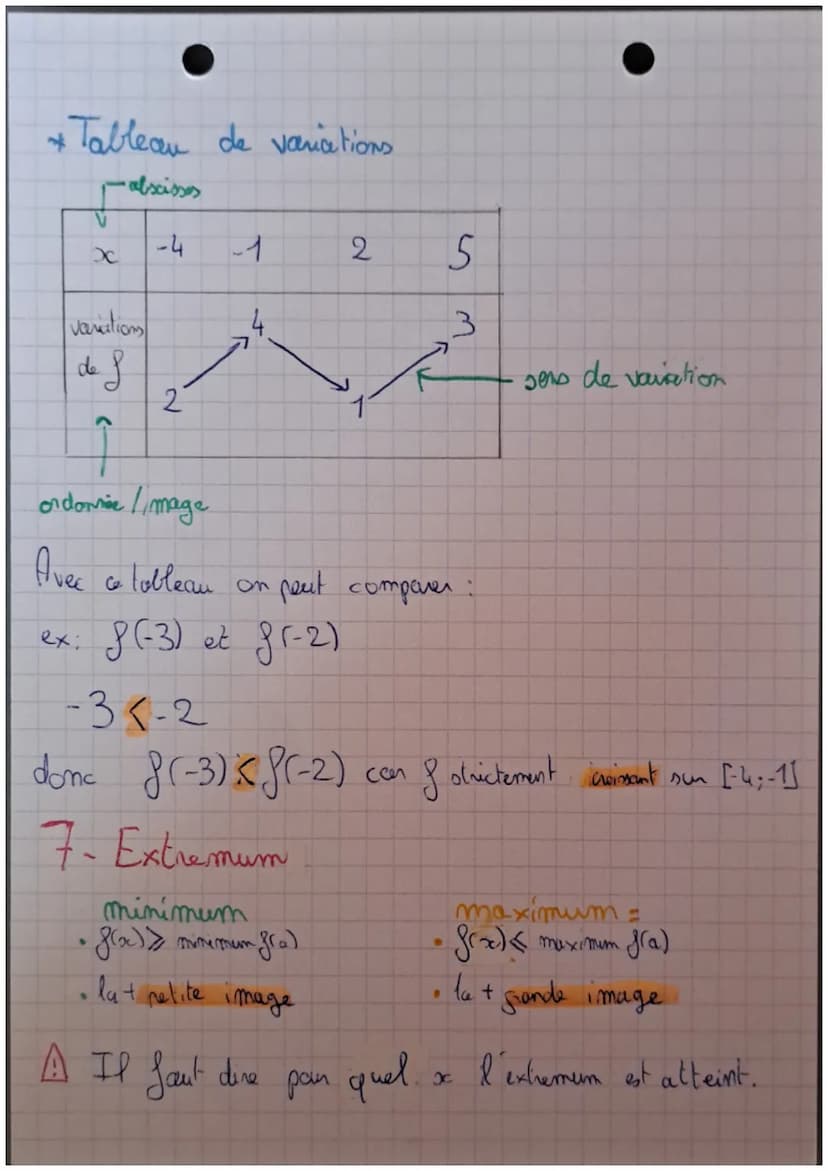 * Tableau de variations
abscisses
x -4 -1 2 5
variations
de f
2 4 1 3
sens de variation
ordonnée / image
Avec ce tableau on peut comparer :
ex: f(-3) et f(-2)
-3 < -2
donc f(-3) < f(-2) car f strictement croissant sur [-4;-1]
7- Extremum
minimum
• f(x) ⩾ minimum f(a)
• la + petite image
maximum =
• f(x) ⩽ maximum f(a)
• la + grande image
⚠ Il faut dire pour quel x l'extremum est atteint.